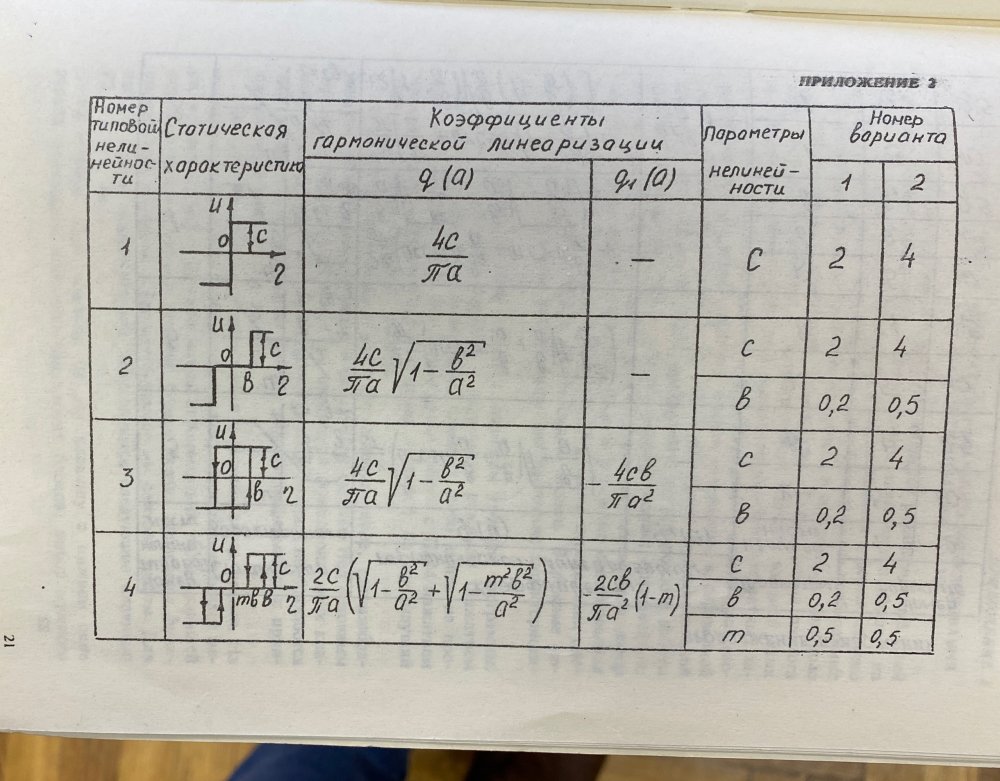 ПРИЛОЖЕНИЕ 3
Номер типовой нели- нейнос- ти
Статическая характеристика
Коэффициенты гармонической линеаризации
q (a)
q₁ (a)
Параметры нелиней- ности
Номер варианта
1 2
1
u 0 c η
4c/πa
—
c 2 4
2
u 0 c в η
4c/πa √1-в²/a²
—
c 2 4
в 0,2 0,5
3
u 0 c в η
4c/πa √1-в²/a²
-4cв/πa²
c 2 4
в 0,2 0,5
4
u 0 c mв в η
2c/πa (√1-в²/a² + √1-m²в²/a²)
-2cв/πa² (1-m)
c 2 4
в 0,2 0,5
m 0,5 0,5
21